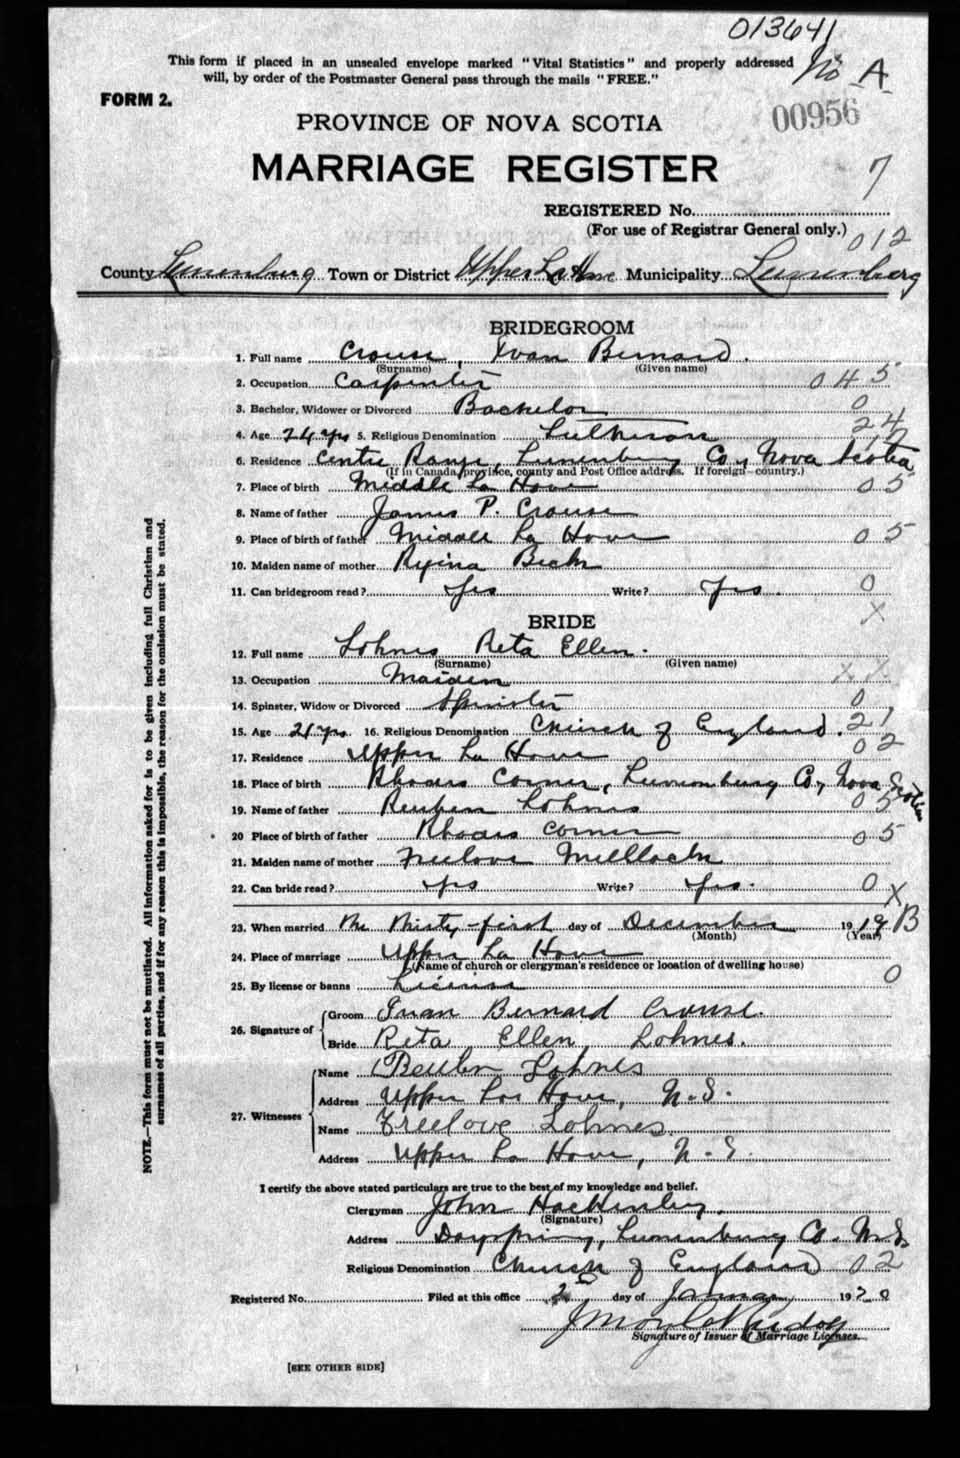 013641
This form if placed in an unsealed envelope marked "Vital Statistics" and properly addressed
will, by order of the Postmaster General pass through the mails "FREE."
No A
FORM 2.
00956
PROVINCE OF NOVA SCOTIA
MARRIAGE REGISTER
7
REGISTERED No.
(For use of Registrar General only.)
012
County Lunenburg Town or District Upper La Have Municipality Lunenburg
BRIDEGROOM
1. Full name Crouse, Ivan Bernard.
(Surname) (Given name)
2. Occupation Carpenter 045
3. Bachelor, Widower or Divorced Bachelor 0
4. Age 24 yrs 5. Religious Denomination Lutheran 24
12
6. Residence Centre Range, Lunenburg Co, Nova Scotia
(If in Canada, province, county and Post Office address. If foreign—country.)
7. Place of birth Middle La Have 05
8. Name of father James P. Crouse
9. Place of birth of father Middle La Have 05
10. Maiden name of mother Regina Beck
11. Can bridegroom read? Yes Write? Yes. 0
X
BRIDE
12. Full name Lohnes Reta Ellen.
(Surname) (Given name)
13. Occupation Maiden X X
14. Spinster, Widow or Divorced Spinster 0
15. Age 21 yrs. 16. Religious Denomination Church of England. 21
17. Residence Upper La Have 02
18. Place of birth Rhodes Corner, Lunenburg Co, Nova Scotia
19. Name of father Reuben Lohnes 05
20 Place of birth of father Rhodes Corner 05
21. Maiden name of mother Freelove
22. Can bride read? Yes Write? Yes. 0
X
23. When married The Thirty-first day of December 1919 B
(Month) (Year)
24. Place of marriage Upper La Have
(Name of church or clergyman's residence or location of dwelling house)
25. By license or banns License 0
26. Signature of
Groom Ivan Bernard Crouse.
Bride Reta Ellen Lohnes.
27. Witnesses
Name Reuben Lohnes
Address Upper La Have, N.S.
Name Freelove Lohnes
Address Upper La Have, N.S.
I certify the above stated particulars are true to the best of my knowledge and belief.
Clergyman John
(Signature)
Address Dayspring, Lunenburg Co. N.S.
Religious Denomination Church of England 02
Registered No. Filed at this office 2 day of January 1920
Signature of Issuer of Marriage Licenses.
[SEE OTHER SIDE]
NOTE.—This form must not be mutilated. All information asked for is to be given including full Christian and
surnames of all parties, and if for any reason this is impossible, the reason for the omission must be stated.